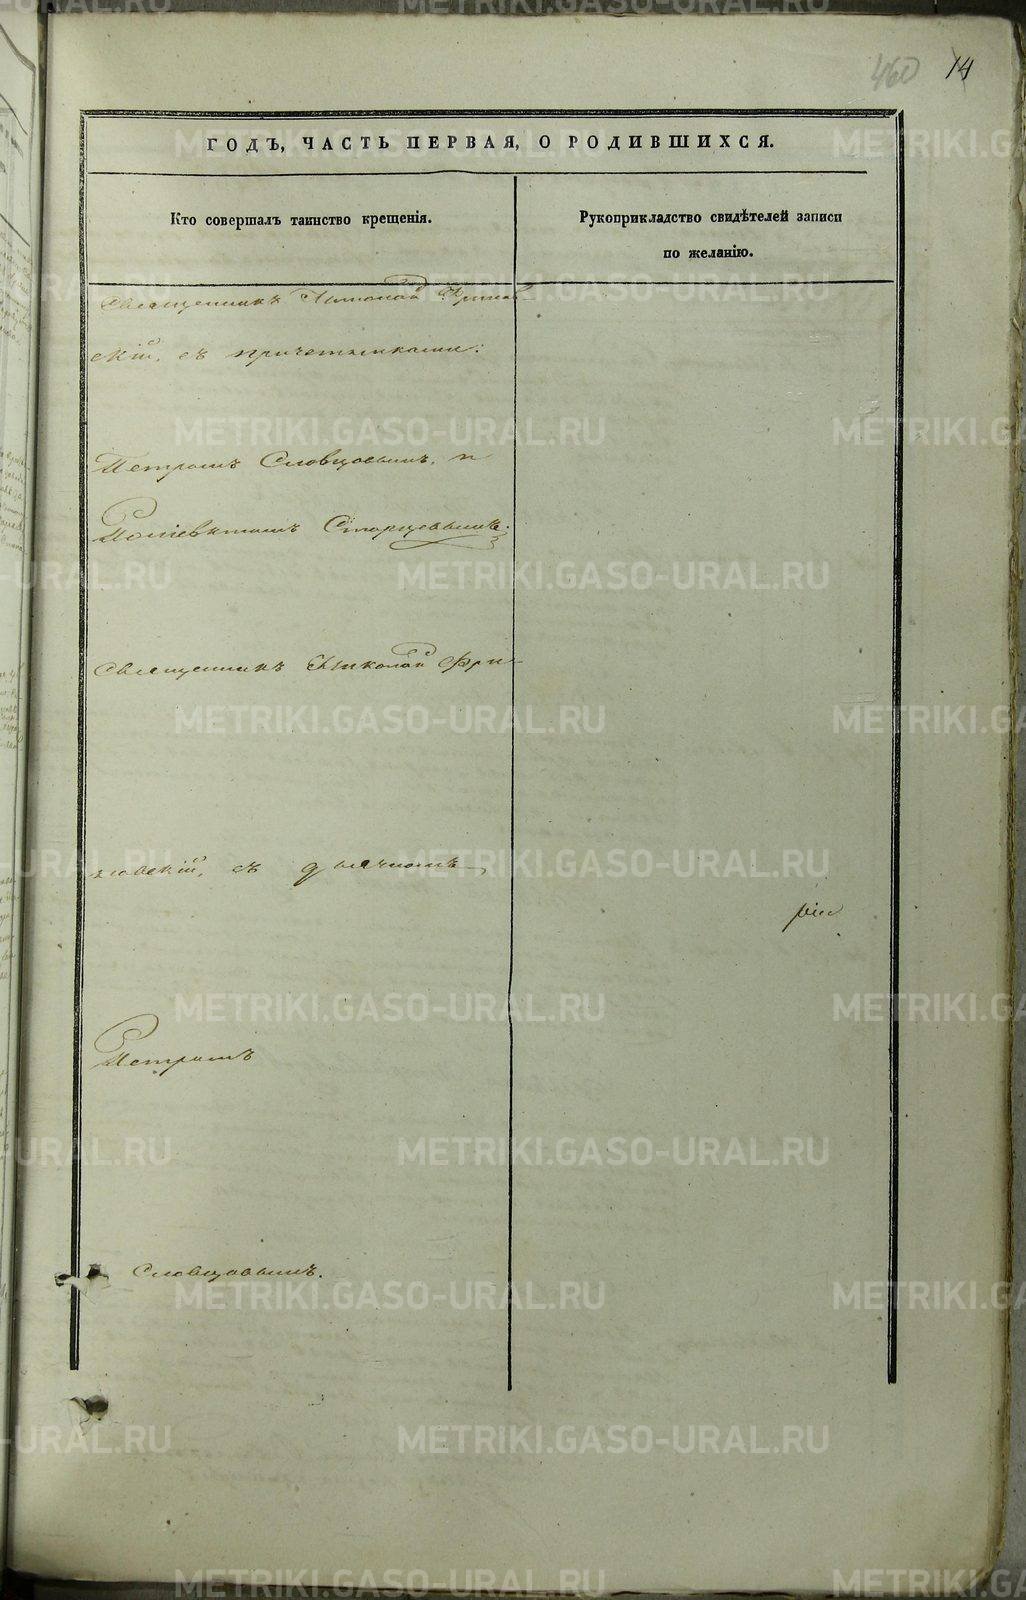 460 14
ГОДЪ, ЧАСТЬ ПЕРВАЯ, О РОДИВШИХСЯ.
Кто совершалъ таинство крещенія.
Рукоприкладство свидѣтелей записи
по желанію.
Священникъ Николай
скій, съ причетниками:
Петромъ Словцовымъ, и
Старцевымъ.
Священникъ Николай Фри-
ловскій, съ дьячкомъ
Петромъ
Словцовымъ.
METRIKI.GASO-URAL.RU